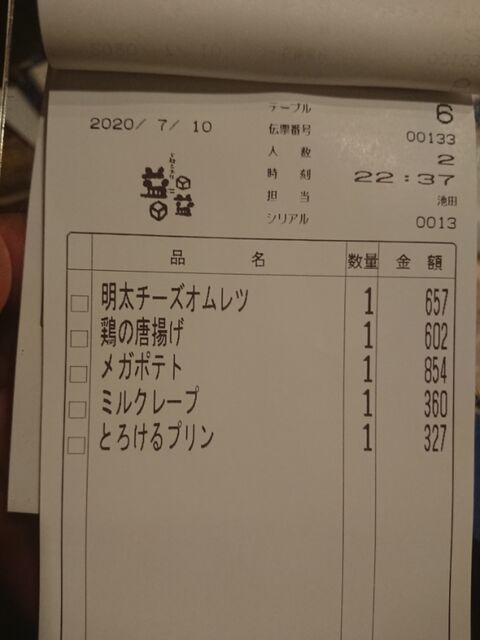 テーブル 6
2020/ 7/ 10
伝票番号 00133
人 数 2
時 刻 22:37
担 当 池田
シリアル 0013
益益
品 名 数量 金 額
明太チーズオムレツ 1 657
鶏の唐揚げ 1 602
メガポテト 1 854
ミルクレープ 1 360
とろけるプリン 1 327